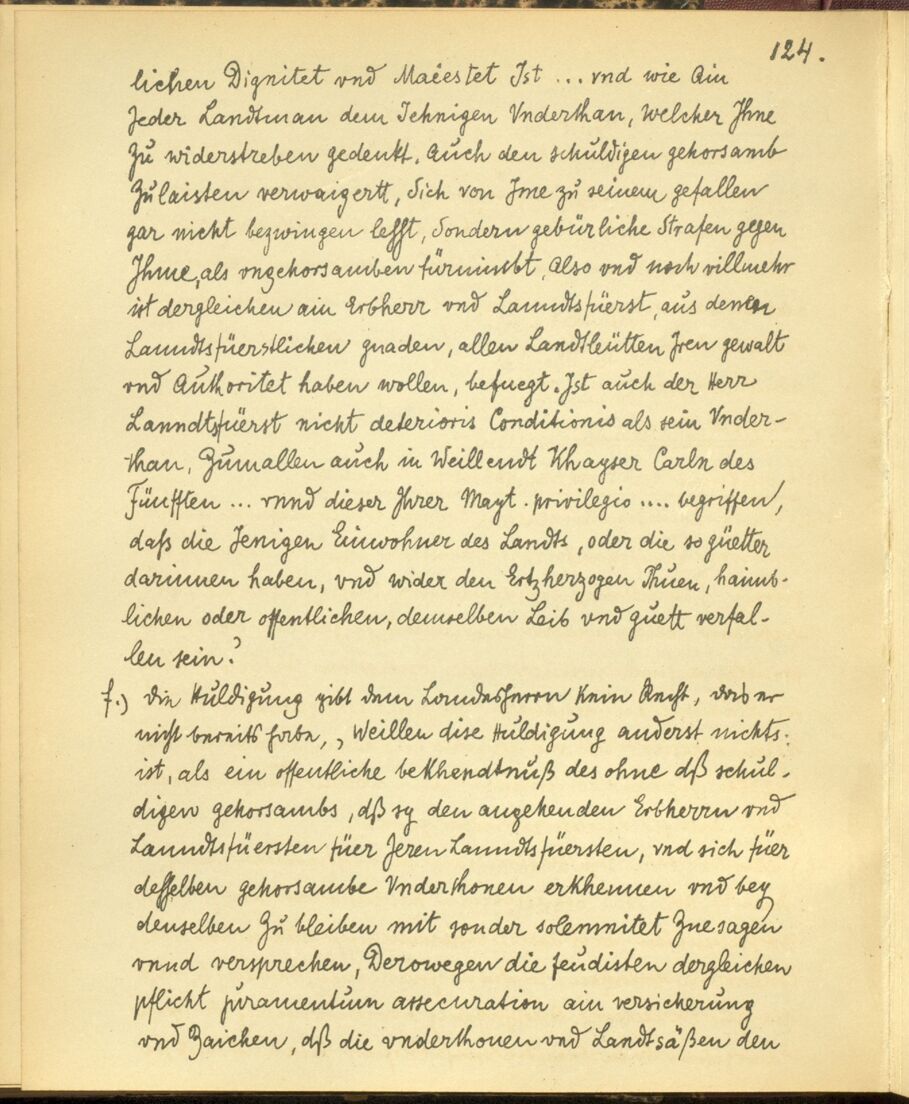 124.
lichen Dignitet vnd Maiestet Ist ... vnd wie Ain
Jeder Landtman dem Jehnigen Vnderthan, welcher Ihme
Zu widerstreben gedenkt, Auch den schuldigen gehorsamb
Zulaisten verwaigertt, Sich von Ime zu seinem gefallen
gar nicht bezwingen lesst, Sondern gebürliche Strafen gegen
Ihme, als vngehorsamben fürnimbt, Also vnd noch villmehr
ist dergleichen ain Erbherr vnd Lanndtsfüerst, aus dennen
Lanndtsfüerstlichen gnaden, allen Landtleütten Iren gewalt
vnd Authoritet haben wollen, befuegt. Ist auch der Herr
Lanndtsfüerst nicht deterioris Conditionis als sein Vnder-
than, Zumallen auch in Weillendt Khayser Carln des
Fünfften ... vnnd dieser Ihrer Mayt. privilegio .... begriffen,
daß die Jenigen Einwohner des Landts, oder die so güetter
darinnen haben, vnd wider den Ertzherzogen Thuen, haimb-
lichen oder offentlichen, demselben Leib vnd guett verfal-
len sein.“
f.) Die Huldigung gibt dem Landesherrn kein Recht, das er
nicht bereits habe, „Weillen dise Huldigung anderst nichts
ist, als ein offentliche bekhendtnuß des ohne dß schul-
digen gehorsambs, dß sy den angehenden Erbherrn vnd
Lanndtsfüersten füer Jeren Lanndtsfüersten, vnd sich füer
desselben gehorsambe Vnderthonen erkhennen vnd bey
denselben Zu bleiben mit sonder solemnitet Zuesagen
vnnd versprechen, Derowegen die feudisten dergleichen
pflicht juramentum assecuration ain versicherung
vnd Zaichen, dß die vnderthonen vnd Landtsäßen den